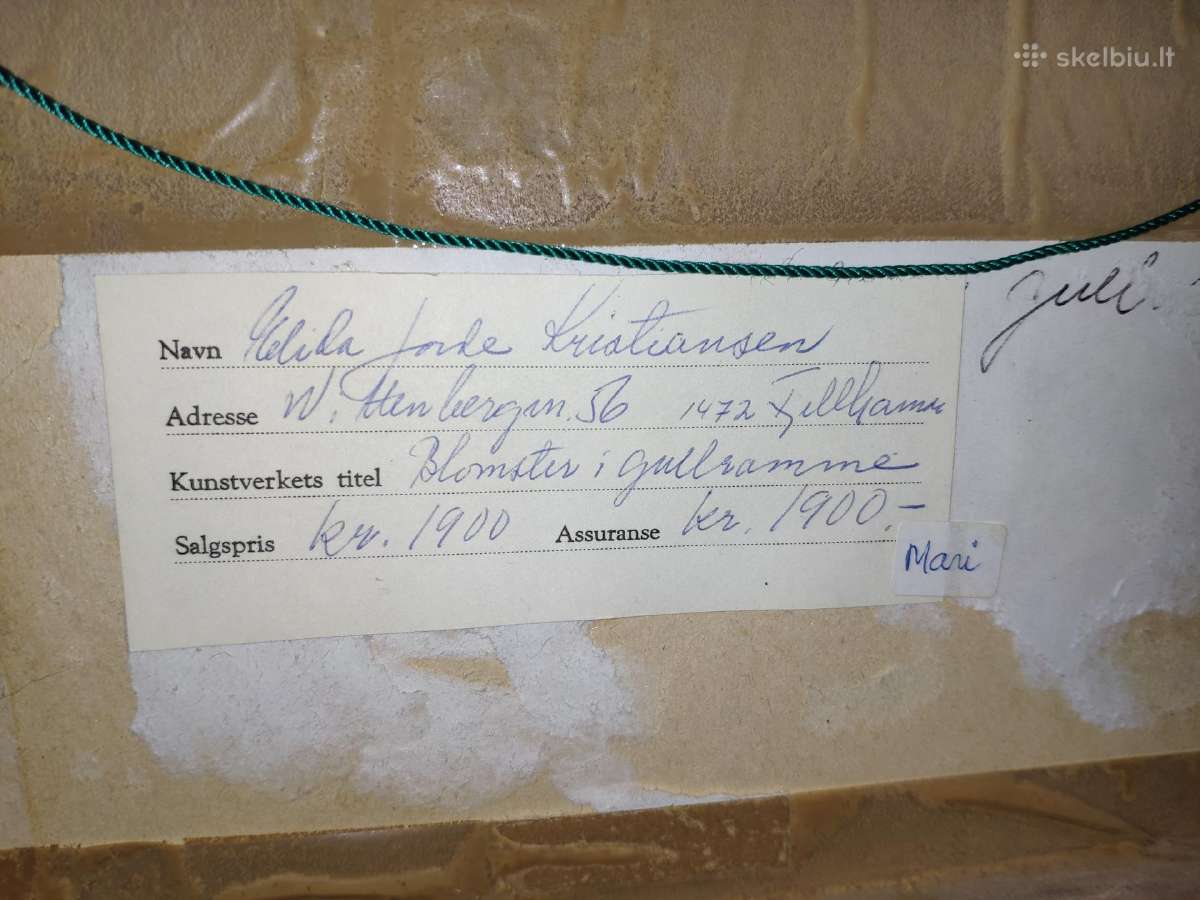 skelbiu.lt
juli.
Navn Elida Jorde Kristiansen
Adresse W. Ittenbergvn. 56 1472 Fjellhamar
Kunstverkets titel Blomster i gullramme
Salgspris kr. 1900 Assuranse kr. 1900.-
Mari